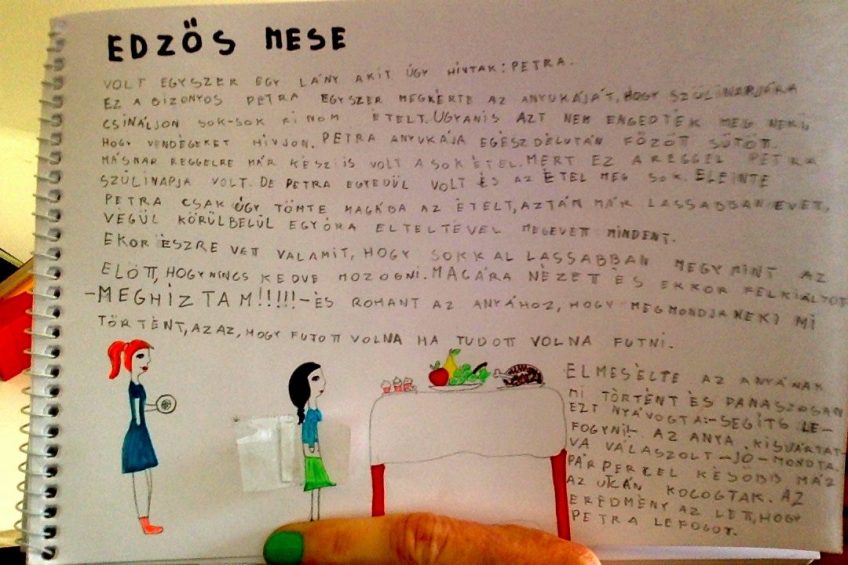 EDZŐS MESE
VOLT EGYSZER EGY LÁNY AKIT ÚGY HÍVTAK: PETRA.
EZ A BIZONYOS PETRA EGYSZER MEGKÉRTE AZ ANYUKÁJÁT, HOGY SZÜLINAPJÁRA
CSINÁLJON SOK-SOK FINOM ÉTELT. UGYANIS AZT NEM ENGEDTÉK MEG NEKI
HOGY VENDÉGEKET HÍVJON. PETRA ANYUKÁJA EGÉSZ DÉLUTÁN FŐZÖTT SÜTÖTT.
MÁSNAP REGGELRE MÁR KÉSZ IS VOLT A SOK ÉTEL. MERT EZ A REGGEL PETRA
SZÜLINAPJA VOLT. DE PETRA EGYEDÜL VOLT ÉS AZ ÉTEL MEG SOK. ELEINTE
PETRA CSAK ÚGY TÖMTE MAGÁBA AZ ÉTELT, AZTÁN MÁR LASSABBAN EVETT,
VÉGÜL KÖRÜLBELÜL EGY ÓRA ELTELTÉVEL MEGEVETT MINDENT.
EKOR ÉSZRE VETT VALAMIT, HOGY SOKKAL LASSABBAN MEGY MINT AZ
ELŐTT, HOGY NINCS KEDVE MOZOGNI. MAGÁRA NÉZETT ÉS EKKOR FELKIÁLTOTT
-MEGHÍZTAM!!!!!-ÉS ROHANT AZ ANYÁHOZ, HOGY MEGMONDJA NEKI MI
TÖRTÉNT, AZAZ, HOGY FUTOTT VOLNA HA TUDOTT VOLNA FUTNI.
ELMESÉLTE AZ ANYÁNAK
MI TÖRTÉNT ÉS PANASZOSAN
EZT NYÁVOGTA:-SEGÍTS LE-
FOGYNI!- AZ ANYA KISVÁRTAT-
VA VÁLASZOLT -JÓ- MONDTA.
PÁR PERCEL KÉSŐBB MÁR
AZ UTCÁN KOCOGTAK. AZ
EREDMÉNY AZ LETT, HOGY
PETRA LEFOGYOT.